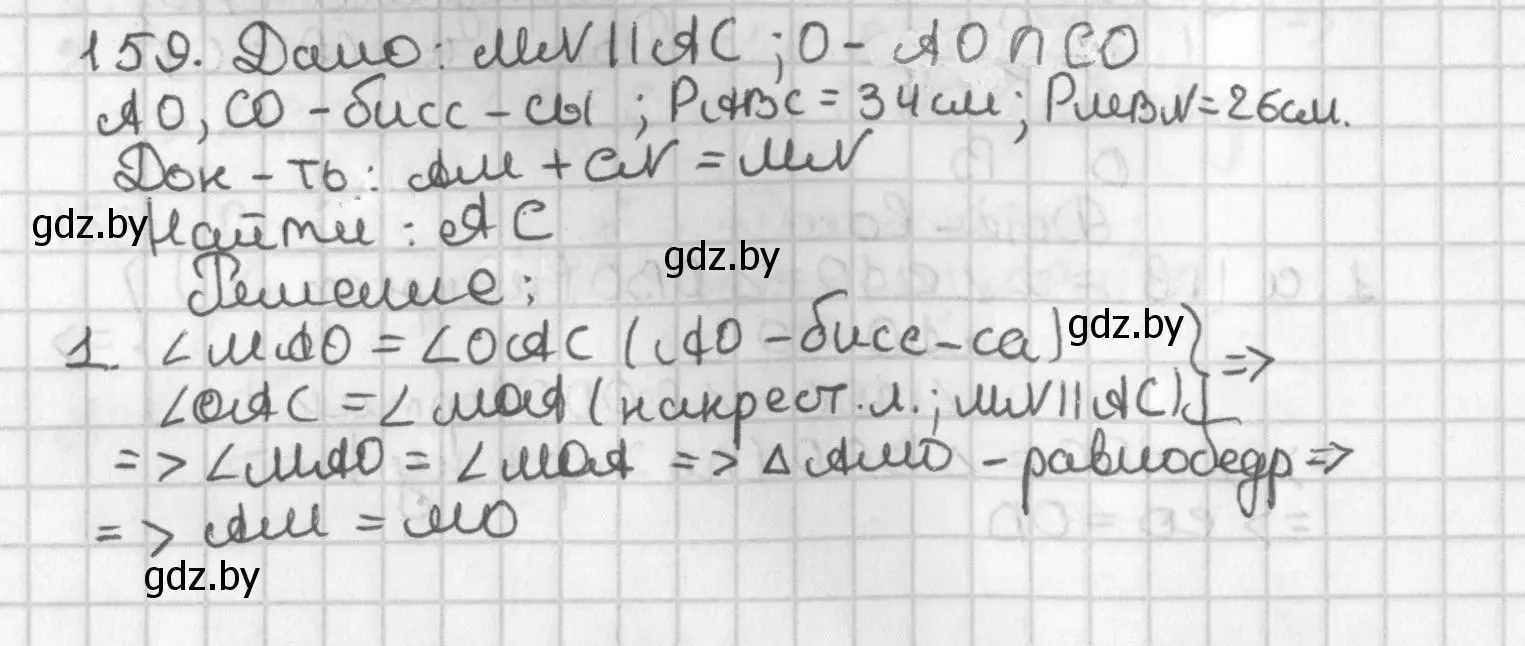 159. Дано: MN||AC; O - AO∩CO
AO, CO - бисс-сы; PABC = 34см; PMBN = 26см.
Док-ть: AM + CN = MN
gdz.by Найти: AC
gdz.by
Решение:
1. ∠MAO = ∠OAC (AO - бисс-са) gdz.by } =>
∠OAC = ∠MOA (накрест. л.; MN||AC)
=> ∠MAO = ∠MOA => △AMO - равнобедр =>
=> AM = MO
gdz.by